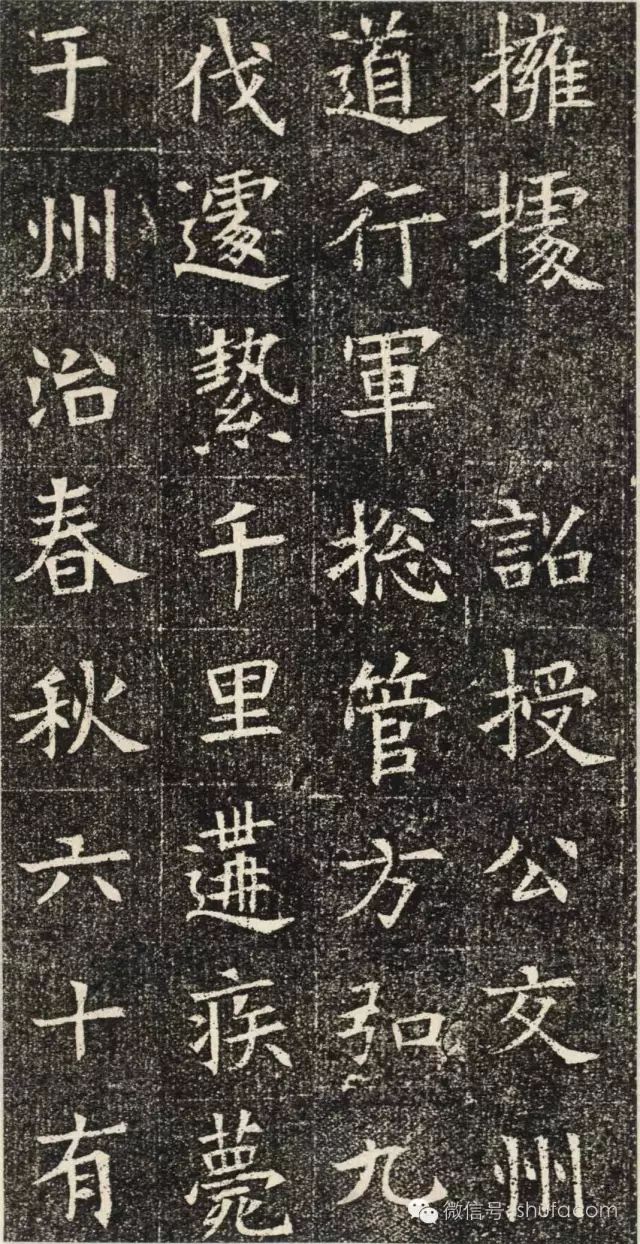 擁據 詔授公交州
道行軍捴管方弘九
伐遽縶千里遘疾薨
于州治春秋六十有
微信号: shufacom